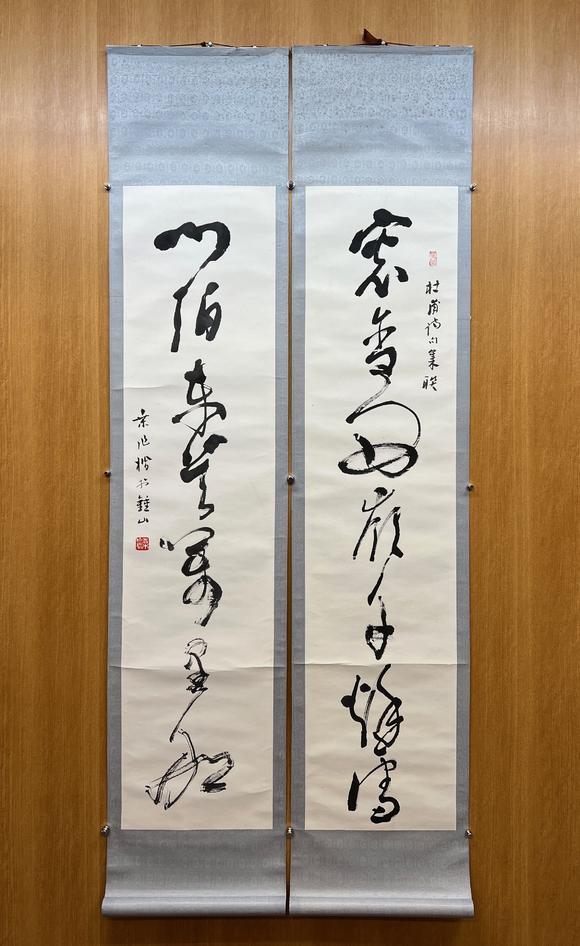 杜甫詩句集聯
窗含西嶺千秋雪
門泊東吳萬里船
鍾山